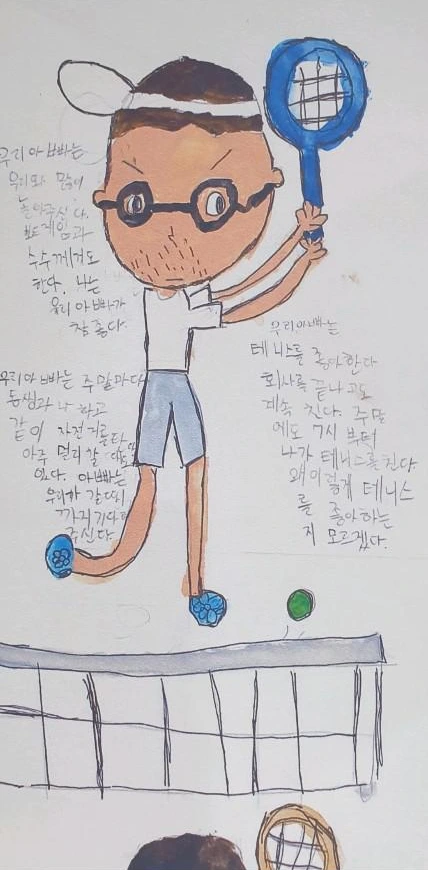 우리 아빠는
우리와 많이
놀아주신다.
보드게임과
수수께끼도
한다. 나는
우리 아빠가
참 좋다.
우리 아빠는 주말마다
동생과 나 하고
같이 자전거를 탄다
아주 멀리 갈 때도
있다. 아빠는
우리가 갈 때
까지 기다려
주신다.
우리아빠는
테니스를 좋아한다
회사를 끝나고도
계속 친다. 주말
에도 7시 부터
나가 테니스를 친다
왜 이렇게 테니스
를 좋아하는
지 모르겠다.